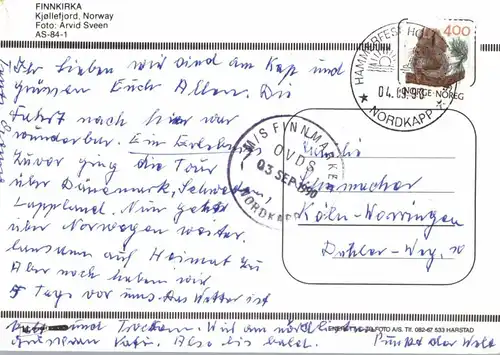 FINNKIRKA
Kjøllefjord, Norway
Foto: Arvid Sveen
AS-84-1
Ihr Lieben wir sind am Kap und
grüssen Euch Allen. Die
Fahrt nach hier war
wunderbar. Ein Erlebnis
Zuvor ging die Tour
über Dänemark, Schweden,
Lappland. Nun geht
über Norwegen weiter.
langsam auf Heimat zu
Aber noch haben wir
5 Tage vor uns. Das Wetter ist
und Trocken. Wir am nördlichsten
Punkt der Welt
Also bis bald.
HAMMERFEST
04.09.90
NORDKAPP
400
NORGE-NOREG
M/S FINNMARKEN
OVDS
03 SEP. 1990
NORDKAPP
Familie
Köln-Worringen
FOTO A/S. Tlf. 082-67 533 HARSTAD